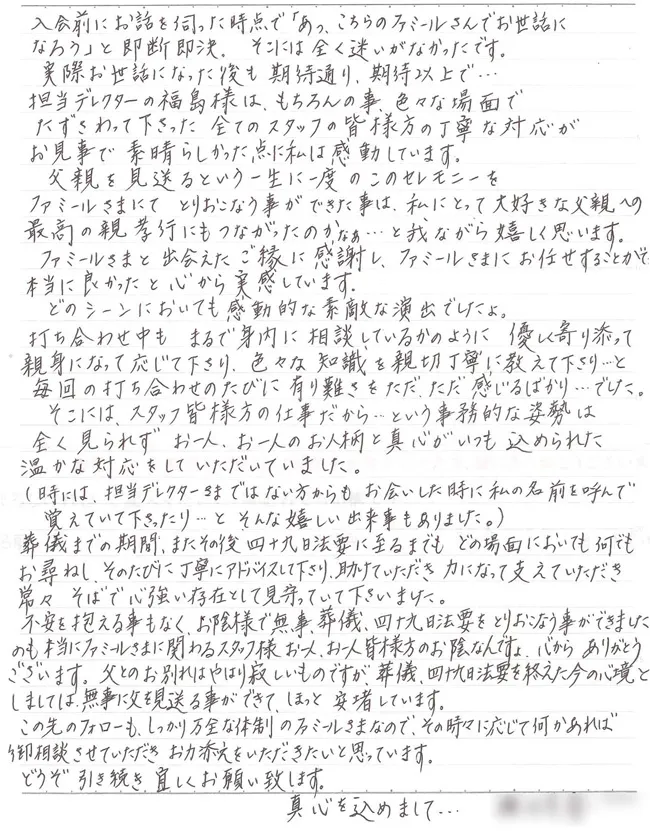 入会前にお話を伺った時点で「あっ、こちらのファミールさんでお世話に
なろう」と即断即決、そこには全く迷いがなかったです。
実際お世話になった後も期待通り、期待以上で…
担当デレクターの福島様は、もちろんの事、色々な場面で
たずさわって下さった全てのスタッフの皆様方の丁寧な対応が
お見事で素晴らしかった点に私は感動しています。
父親を見送るという一生に一度のこのセレモニーを
ファミールさまにてとりおこなう事ができた事は、私にとって大好きな父親への
最高の親孝行にもつながったのかなぁ…と我ながら嬉しく思います。
ファミールさまと出会えたご縁に感謝し、ファミールさまにお任せすることがで
本当に良かったと心から実感しています。
どのシーンにおいても感動的な素敵な演出でしたよ。
打ち合わせ中もまるで身内に相談しているかのように優しく寄り添って
親身になって応じて下さり、色々な知識を親切丁寧に教えて下さり…と
毎回の打ち合わせのたびに有り難さをただ、ただ感じるばかり…でした。
そこには、スタッフ皆様方の仕事だから…という事務的な姿勢は
全く見られずお一人、お一人のお人柄と真心がいつも込められた
温かな対応をしていただいていました。
(時には、担当デレクターさまではない方からもお会いした時に私の名前を呼んで
覚えていて下さったり…とそんな嬉しい出来事もありました。)
葬儀までの期間、またその後四十九日法要に至るまでもどの場面においても何でも
お尋ねし、そのたびに丁寧にアドバイスして下さり、助けていただき力になって支えていただき
常々そばで心強い存在として見守っていて下さいました。
不安を抱える事もなく、お陰様で無事、葬儀、四十九日法要をとりおこなう事ができました
のも本当にファミールさまに関わるスタッフ様お一人、お一人皆様方のお陰なんですよ、心からありがとう
ございます。父とのお別れはやはり寂しいものですが、葬儀、四十九日法要を終えた今の心境と
しましては、無事に父を見送る事ができて、ほっと安堵しています。
この先のフォローも、しっかり万全な体制のファミールさまなので、その時々に応じて何かあれば
御相談させていただきお力添えをいただきたいと思っています。
どうぞ引き続き宜しくお願い致します。
真心を込めまして…